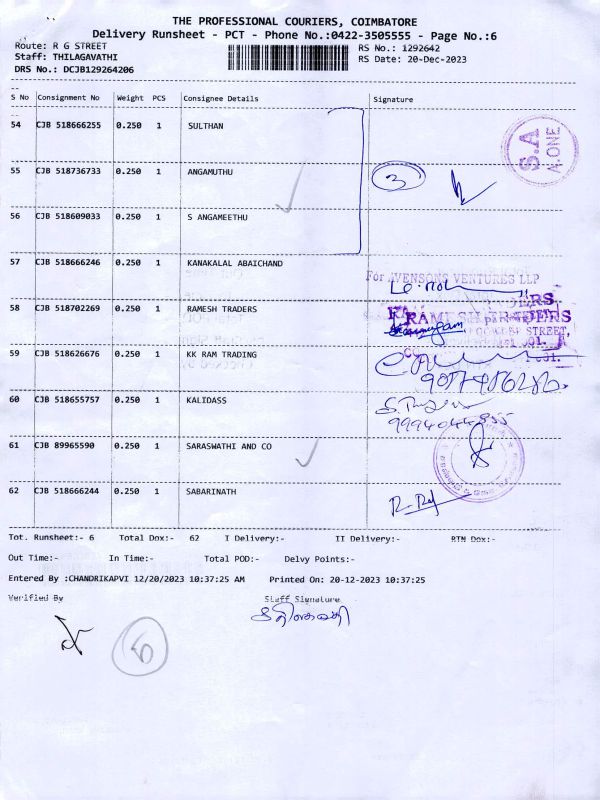 THE PROFESSIONAL COURIERS, COIMBATORE
Delivery Runsheet - PCT - Phone No.:0422-3505555 - Page No.:6
Route: R G STREET
RS No.: 1292642
Staff: THILAGAVATHI
RS Date: 20-Dec-2023
DRS No.: DCJB129264206
S No Consignment No Weight PCS Consignee Details Signature
54 CJB 518666255 0.250 1 SULTHAN
S.A
A.ONE
55 CJB 518736733 0.250 1 ANGAMUTHU
3
56 CJB 518609033 0.250 1 S ANGAMEETHU
57 CJB 518666246 0.250 1 KANAKALAL ABAICHAND
For AVENSONS VENTURES LLP
58 CJB 518702269 0.250 1 RAMESH TRADERS
RAMESH TRADERS
STREET,
59 CJB 518626676 0.250 1 KK RAM TRADING
60 CJB 518655757 0.250 1 KALIDASS
61 CJB 89965590 0.250 1 SARASWATHI AND CO
62 CJB 518666244 0.250 1 SABARINATH
R. Raj
Tot. Runsheet:- 6 Total Dox:- 62 I Delivery:- II Delivery:- RTN Dox:-
Out Time:- In Time:- Total POD:- Delvy Points:-
Entered By :CHANDRIKAPVI 12/20/2023 10:37:25 AM Printed On: 20-12-2023 10:37:25
Verified By Staff Signature
6